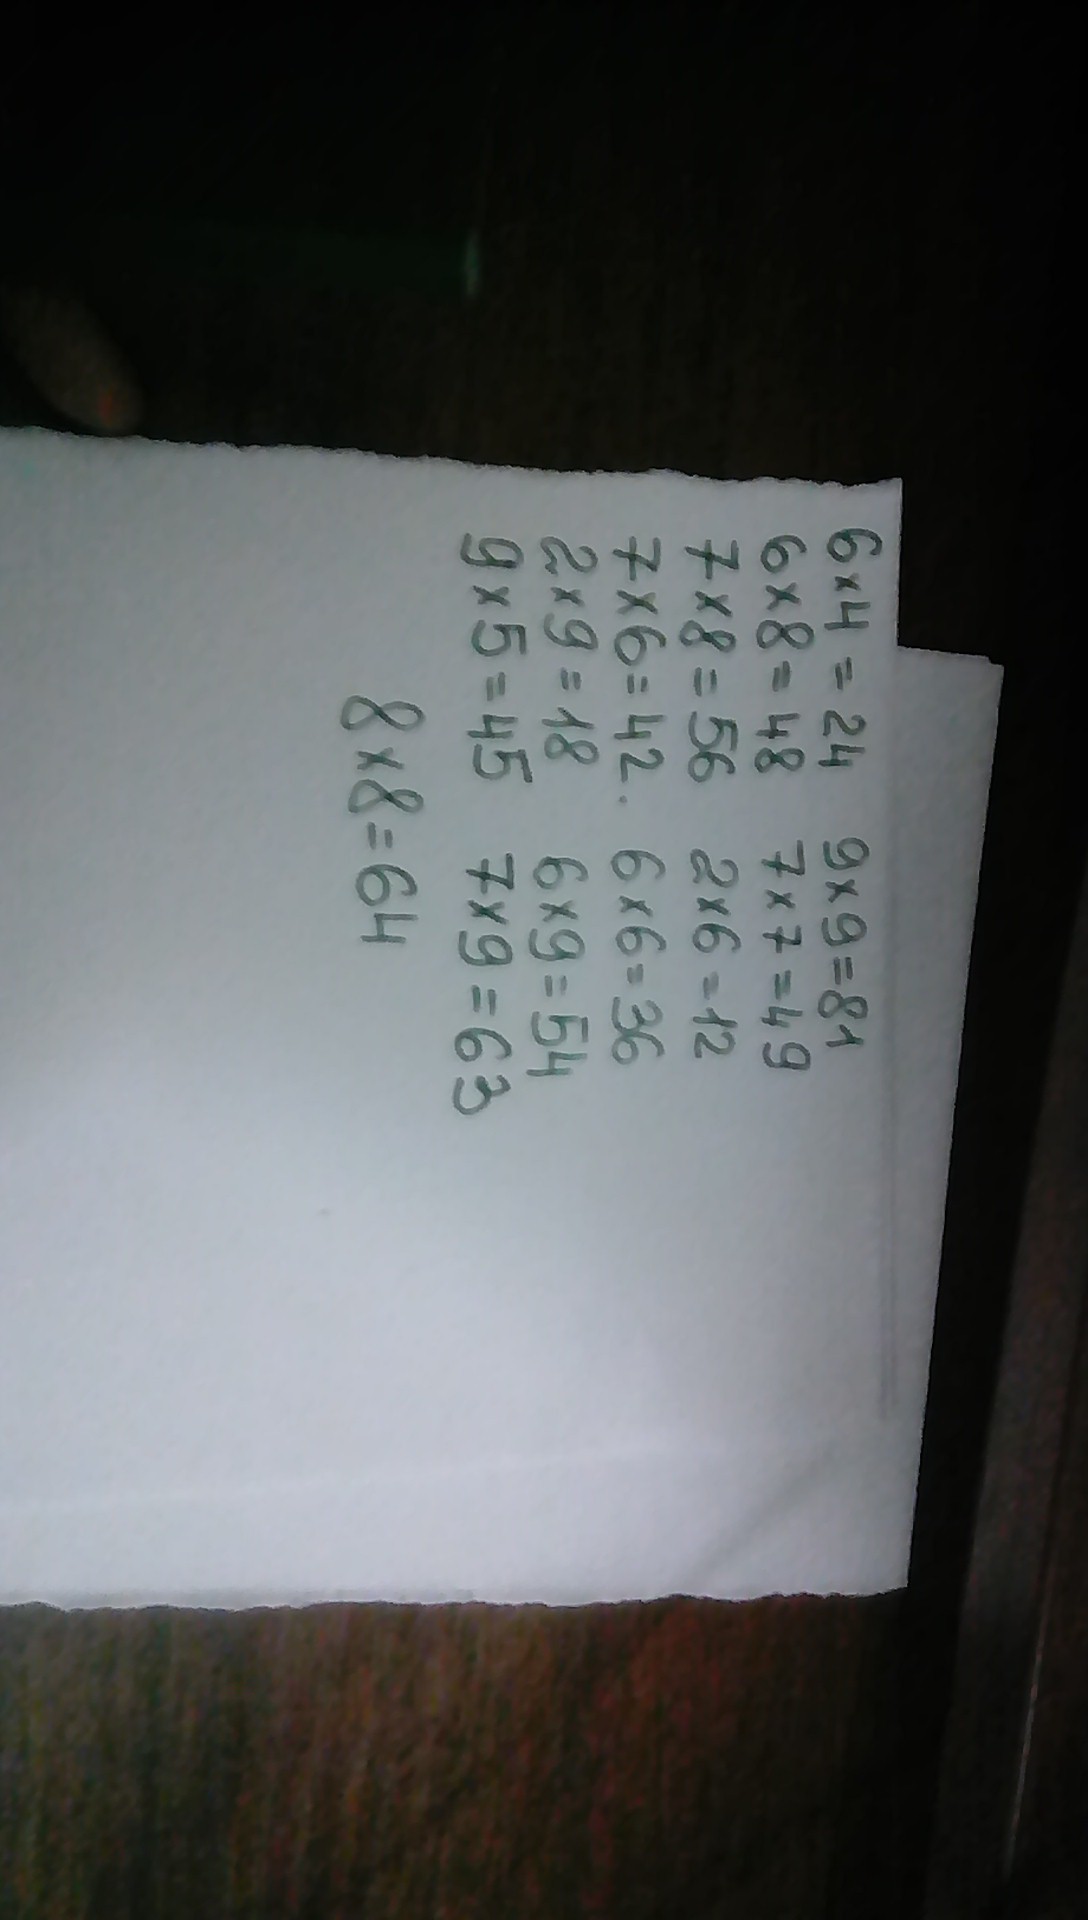 6×4=24 9×9=81
6×8=48 7×7=49
7×8=56 2×6=12
7×6=42. 6×6=36
2×9=18 6×9=54
9×5=45 7×9=63
8×8=64